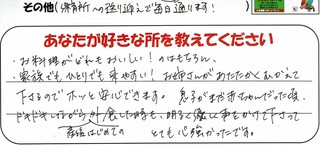 その他(保育所への送り迎えで毎日通ります!
あなたが好きな所を教えてください
・お料理がどれもおいしい!のはもちろん、
・家族でもひとりでも来やすい!お姉さんがあたたかくむかえて
下さるのでホッと安心できます。息子がまだ赤ちゃんだった頃、
ドキドキしながら外食した時も、明るく優しく声をかけて下さって
産後はじめての とても心強かったです。